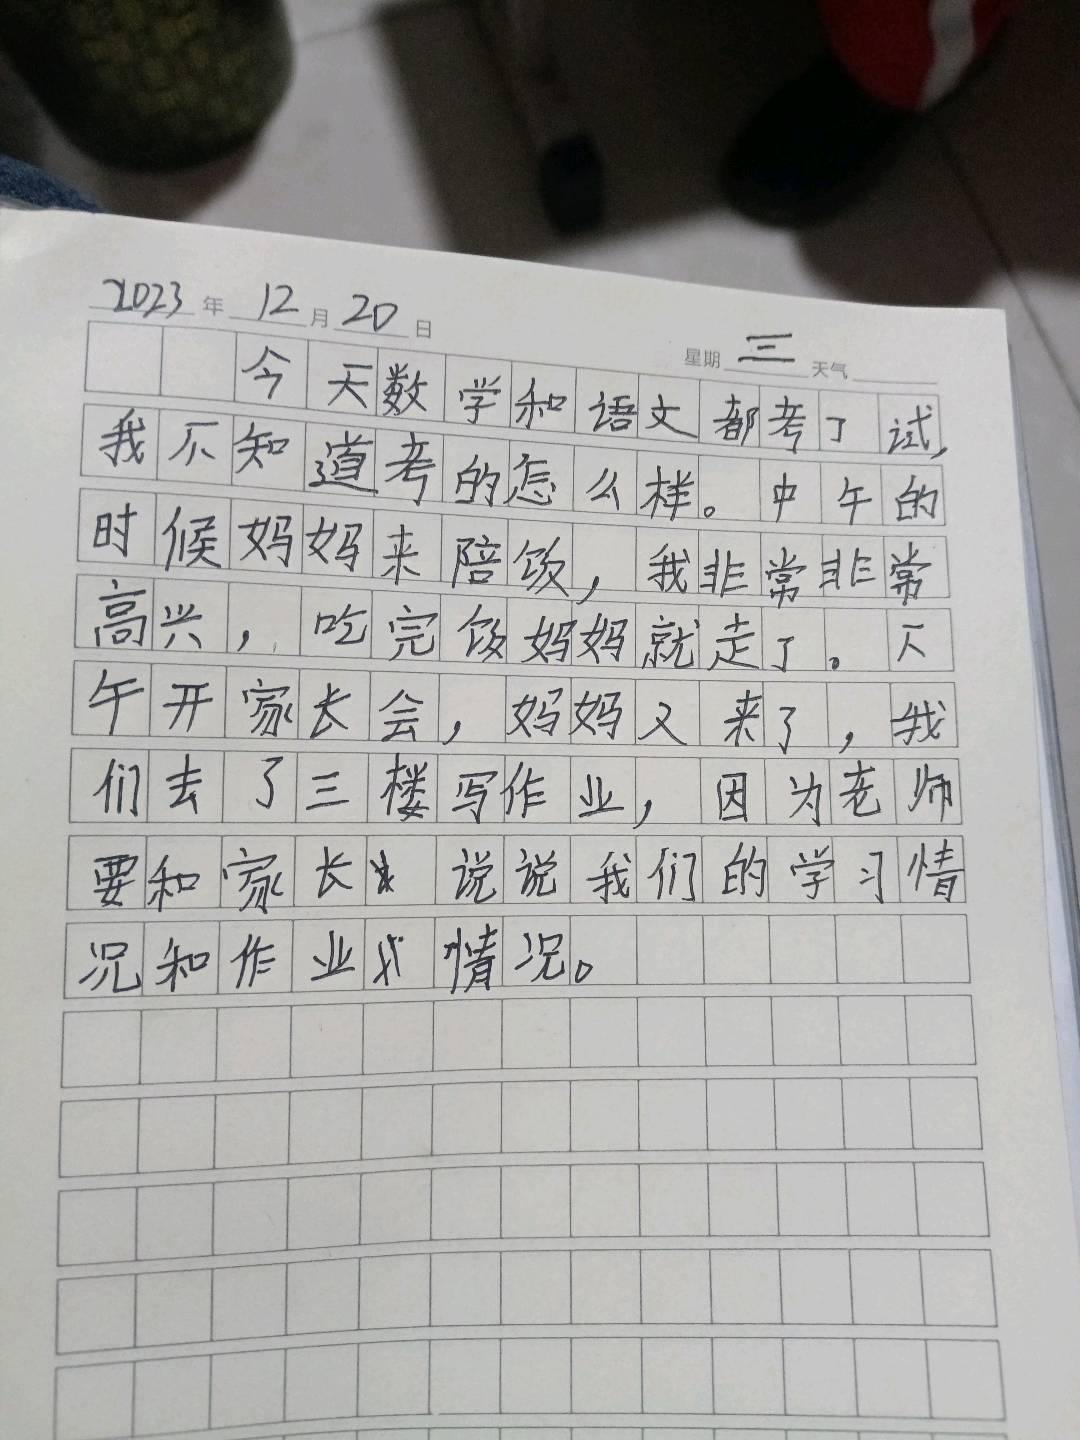 2023年12月20日 星期三天气
今天数学和语文都考了试,
我不知道考的怎么样。中午的
时候妈妈来陪饭,我非常非常
高兴,吃完饭妈妈就走了。下
午开家长会,妈妈又来了,我
们去了三楼写作业,因为老师
要和家长说说我们的学习情
况和作业情况。